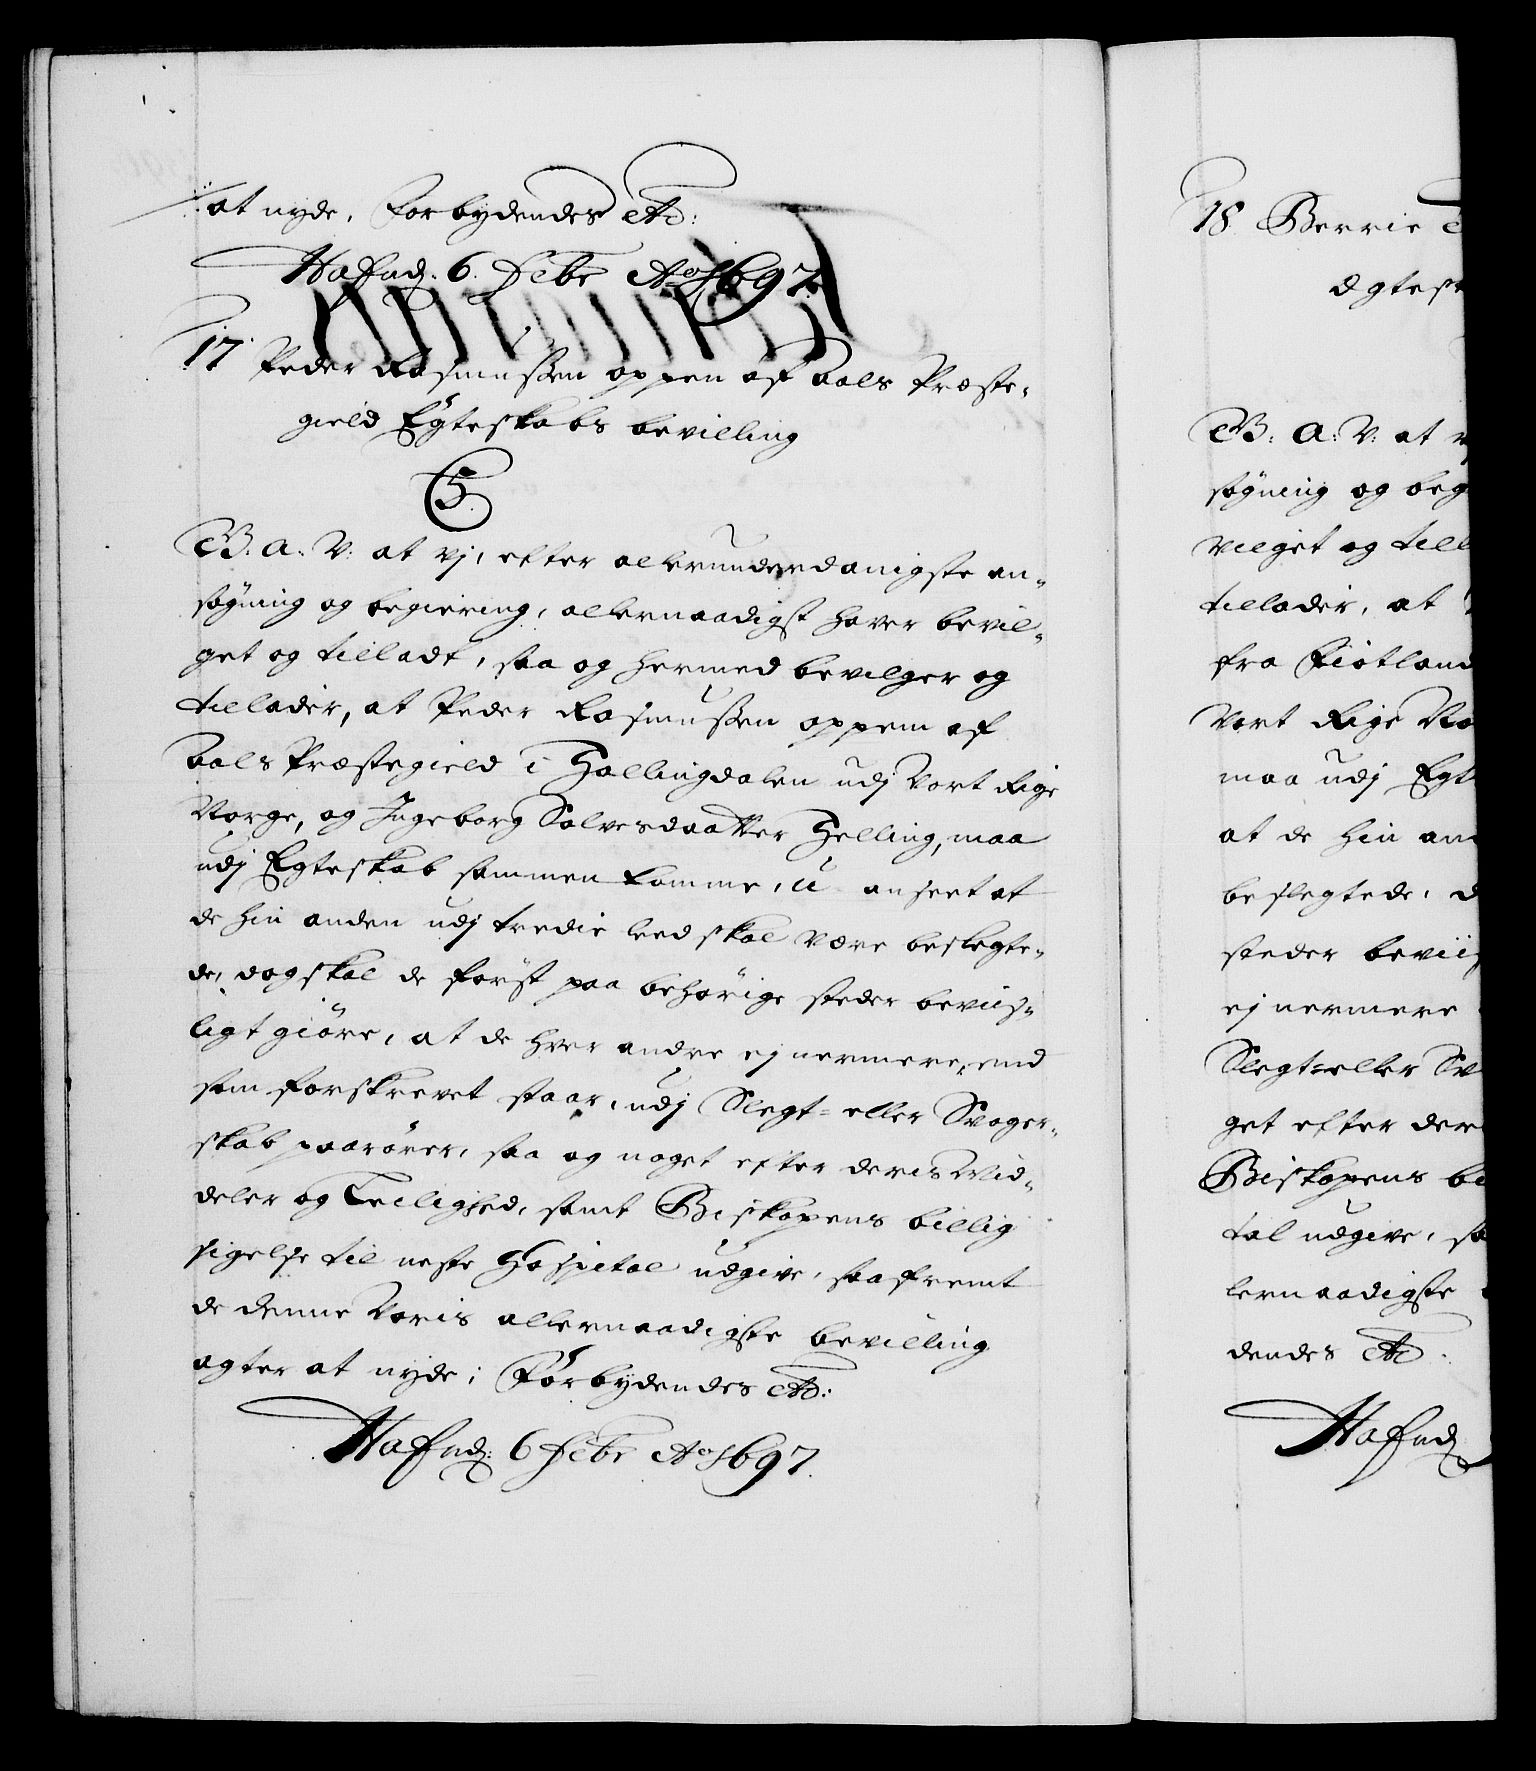 at nyde, Forbydendes etc:
Hafnd: 6. Febr Ao 1697.
17. Peder Rasmussen oppen af Aals Præste-
gield Egteskabs bevilling
C5.
G: A: V: at vj, efter allerunderdanigste an-
søgning og begiering, allernaadigst haver bevil-
get og tilladt, saa og hermed bevilger og
tillader, at Peder Rasmussen oppem af
Aals Præstegield i Hallingdalen udj Vort Rige
Norge, og Ingeborg Salvesdaatter Helling, maa
udj Egteskab sammen komme, u-anseet at
de hin anden udj tredie leed skal være beslegte-
de, dog skal de först paa behörige steder beviis-
ligt giöre, at de hver andre ej nermere, end
som forskrevet staar, udj Slegt- eller Svoger-
skab paarörer, saa og noget efter deris Mid-
deler og Leilighed, samt Biskopens billig
sigelse til neste Hospital udgive, saafremt
de denne Voris allernaadigste bevilling
agter at nyde; Forbydendes etc:
Hafnd: 6 Febr Ao 1697.
18. Berrie
Egtesk
G: A: V: at v
søgning og beg
vilget og till
tillader, at
fra Hiotland
Vort Rige No
maa udj Egt
at de hin and
beslegtede, d
steder beviis
ej nermere
Slegt- eller Sv
get efter der
Biskopens bi
tal udgive, sa
lernaadigste
dendes etc.
Hafnd